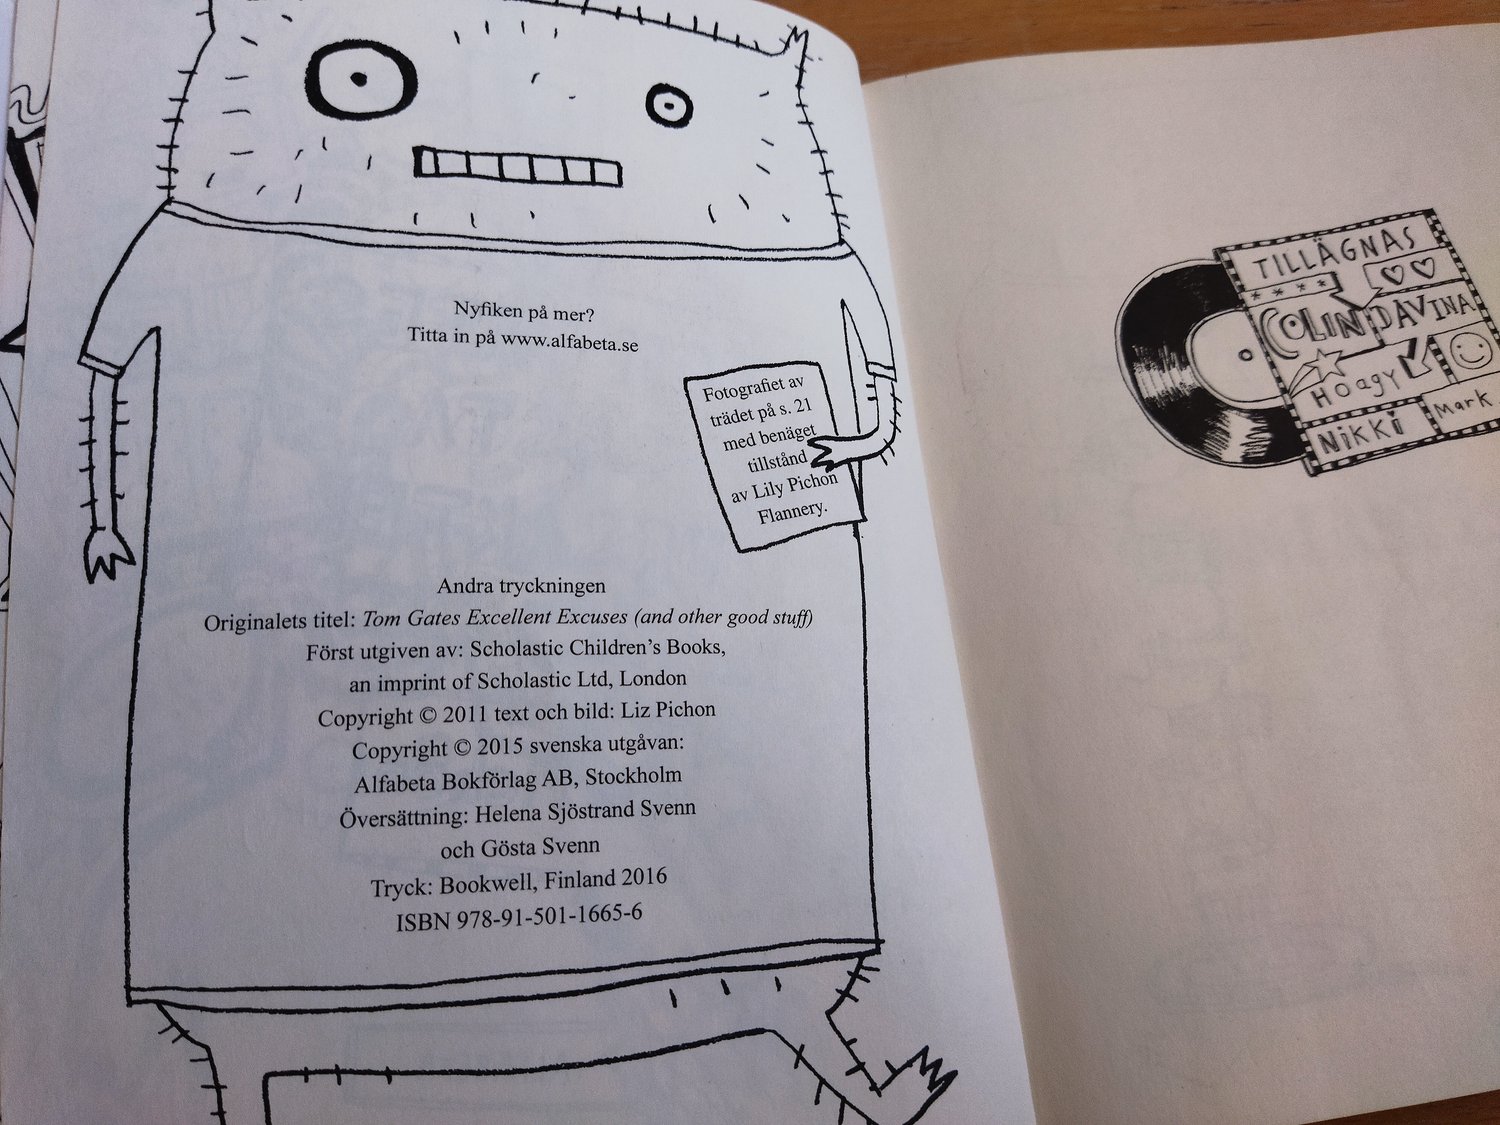 Nyfiken på mer?
Titta in på www.alfabeta.se
Fotografiet av
trädet på s. 21
med benäget
tillstånd
av Lily Pichon
Flannery.
Andra tryckningen
Originalets titel: Tom Gates Excellent Excuses (and other good stuff)
Först utgiven av: Scholastic Children’s Books,
an imprint of Scholastic Ltd, London
Copyright © 2011 text och bild: Liz Pichon
Copyright © 2015 svenska utgåvan:
Alfabeta Bokförlag AB, Stockholm
Översättning: Helena Sjöstrand Svenn
och Gösta Svenn
Tryck: Bookwell, Finland 2016
ISBN 978-91-501-1665-6
TILLÄGNAS
COLIN DAVINA
HOAGY
NiKKi Mark